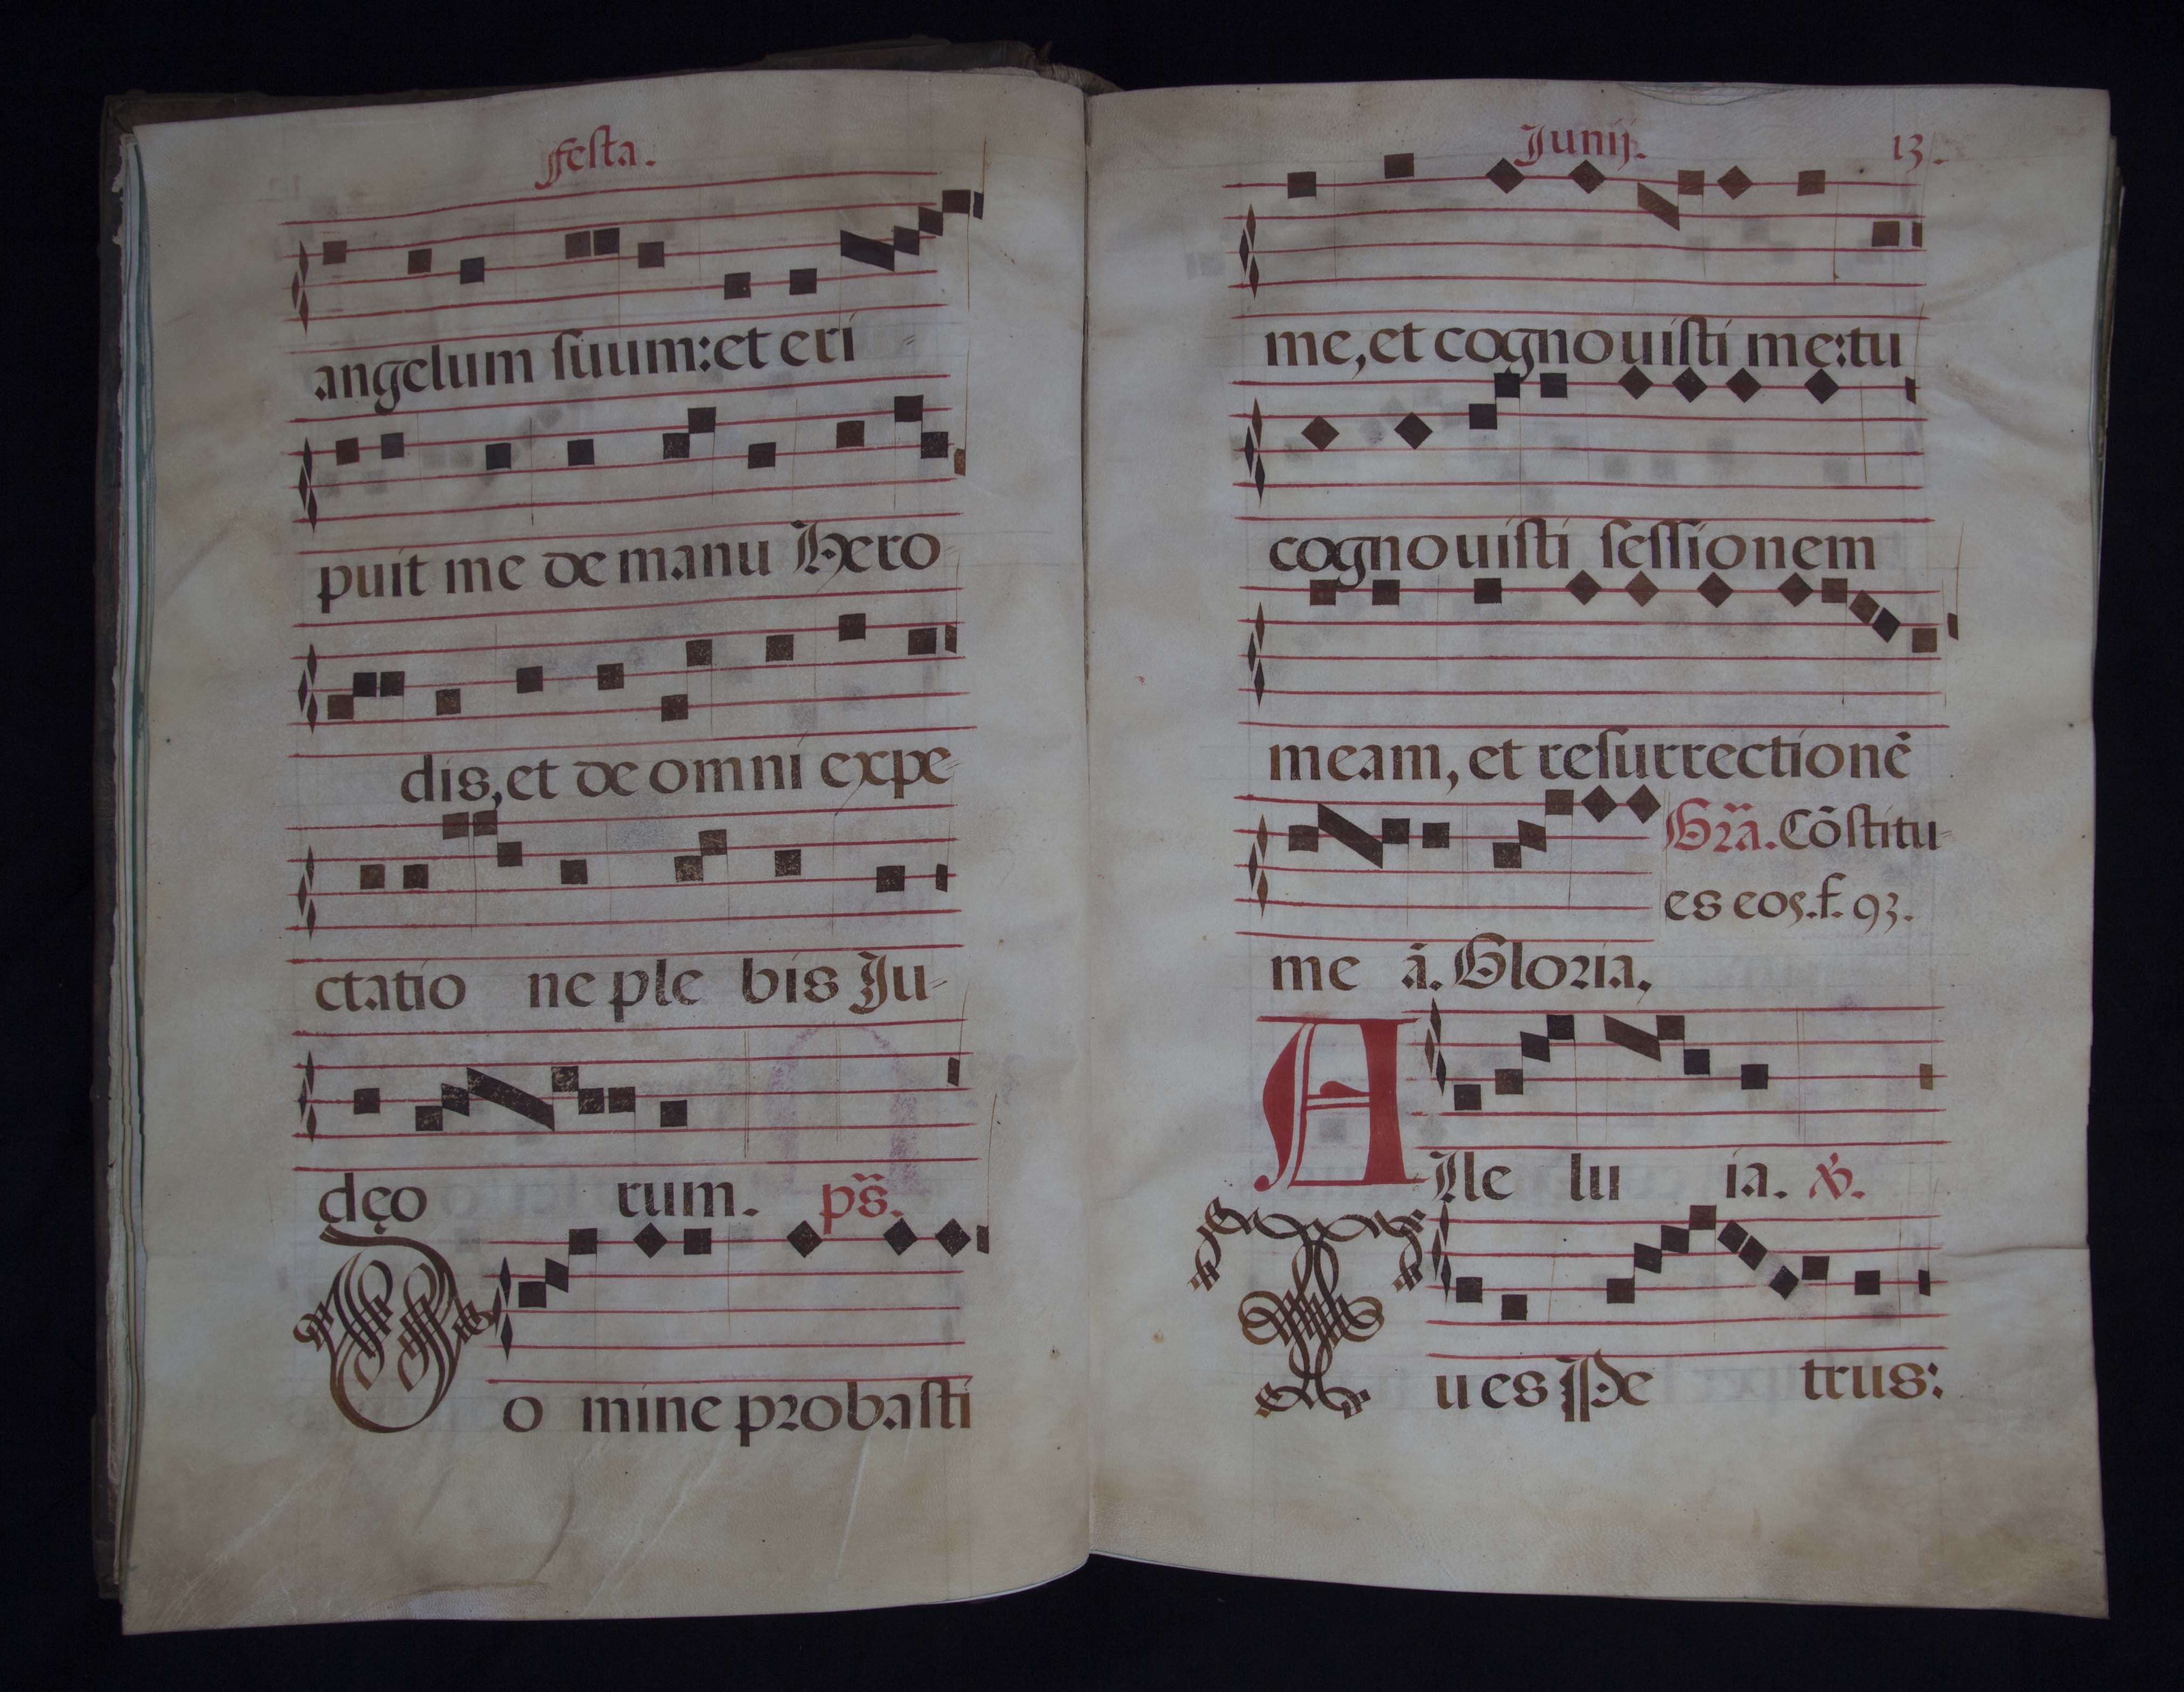 festa.
angelum suum: et eri-
puit me de manu Hero-
dis, et de omni expe-
ctatio ne ple bis Ju-
dęo rum. ps̃.
Do mine probasti
Junij. 13.
me, et cognouisti me: tu
cognouisti sessionem
meam, et resurrectionē
Gr̃a. Cōstitu-
es eos. f. 93.
me ā. Gloria.
Alle lu ia. ℣.
Tu es Pe trus: